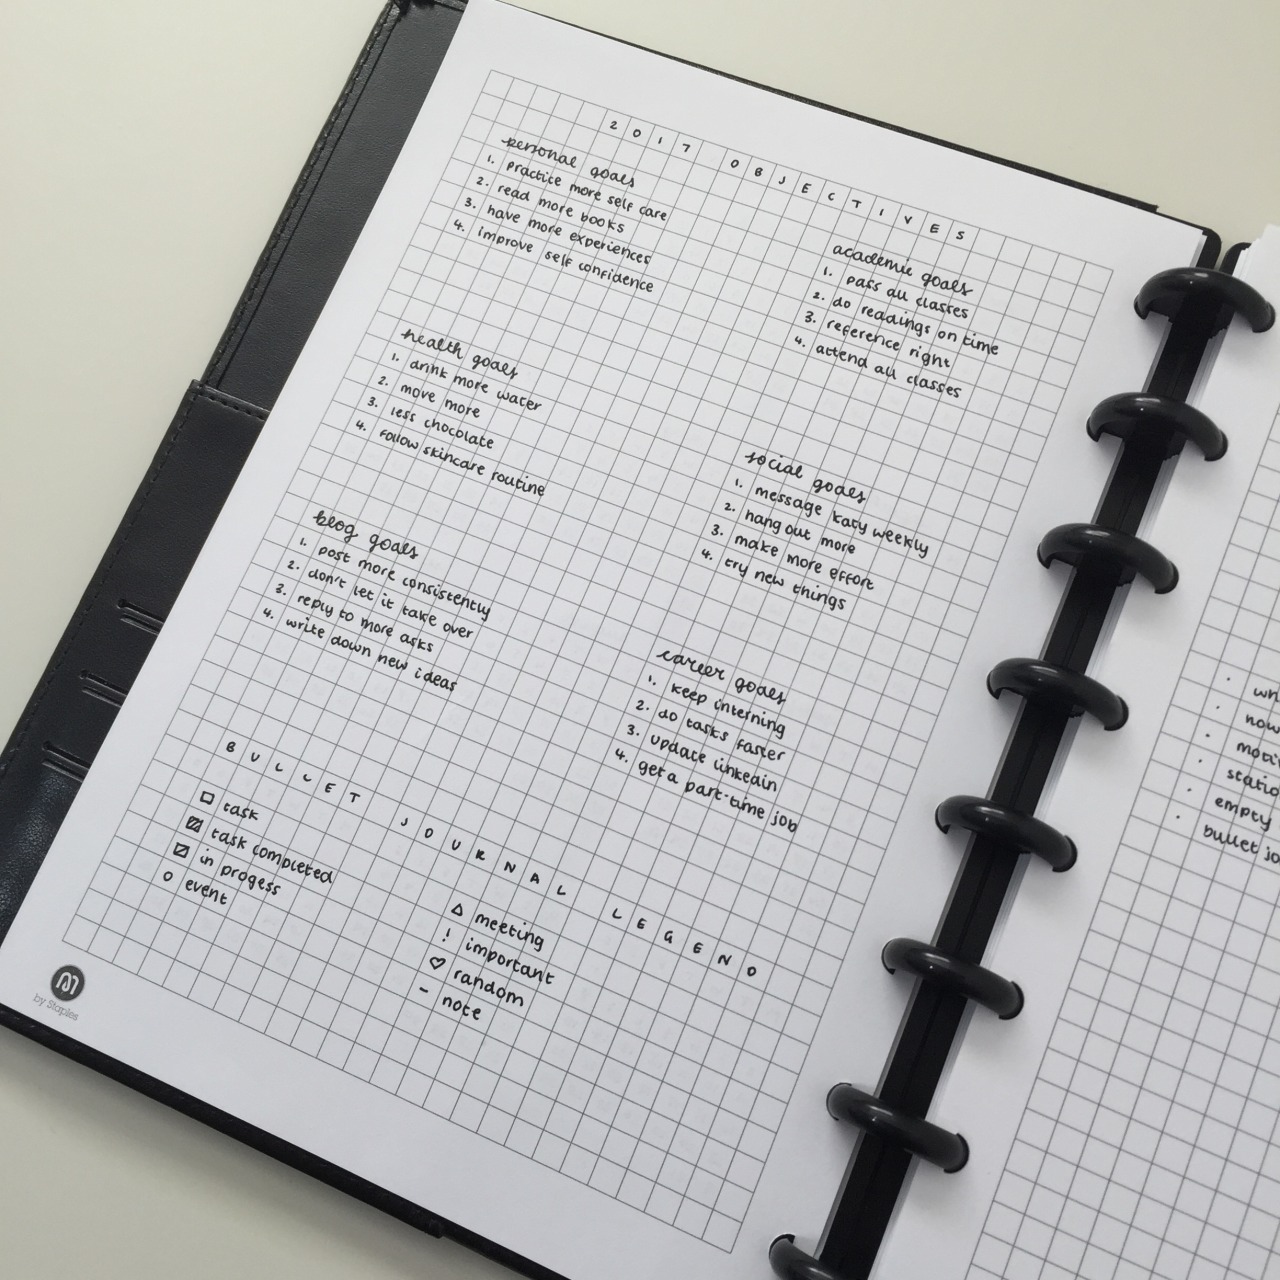 2017 OBJECTIVES
personal goals
1. practice more self care
2. read more books
3. have more experiences
4. improve self confidence
academic goals
1. pass all classes
2. do readings on time
3. reference right
4. attend all classes
health goals
1. drink more water
2. move more
3. less chocolate
4. follow skincare routine
social goals
1. message katy weekly
2. hang out more
3. make more effort
4. try new things
blog goals
1. post more consistently
2. don't let it take over
3. reply to more asks
4. write down new ideas
career goals
1. keep interning
2. do tasks faster
3. update linkedin
4. get a part-time job
BULLET JOURNAL LEGEND
task
task completed
in progess
event
△ meeting
! important
♡ random
- note
M
by Staples
empty
bullet